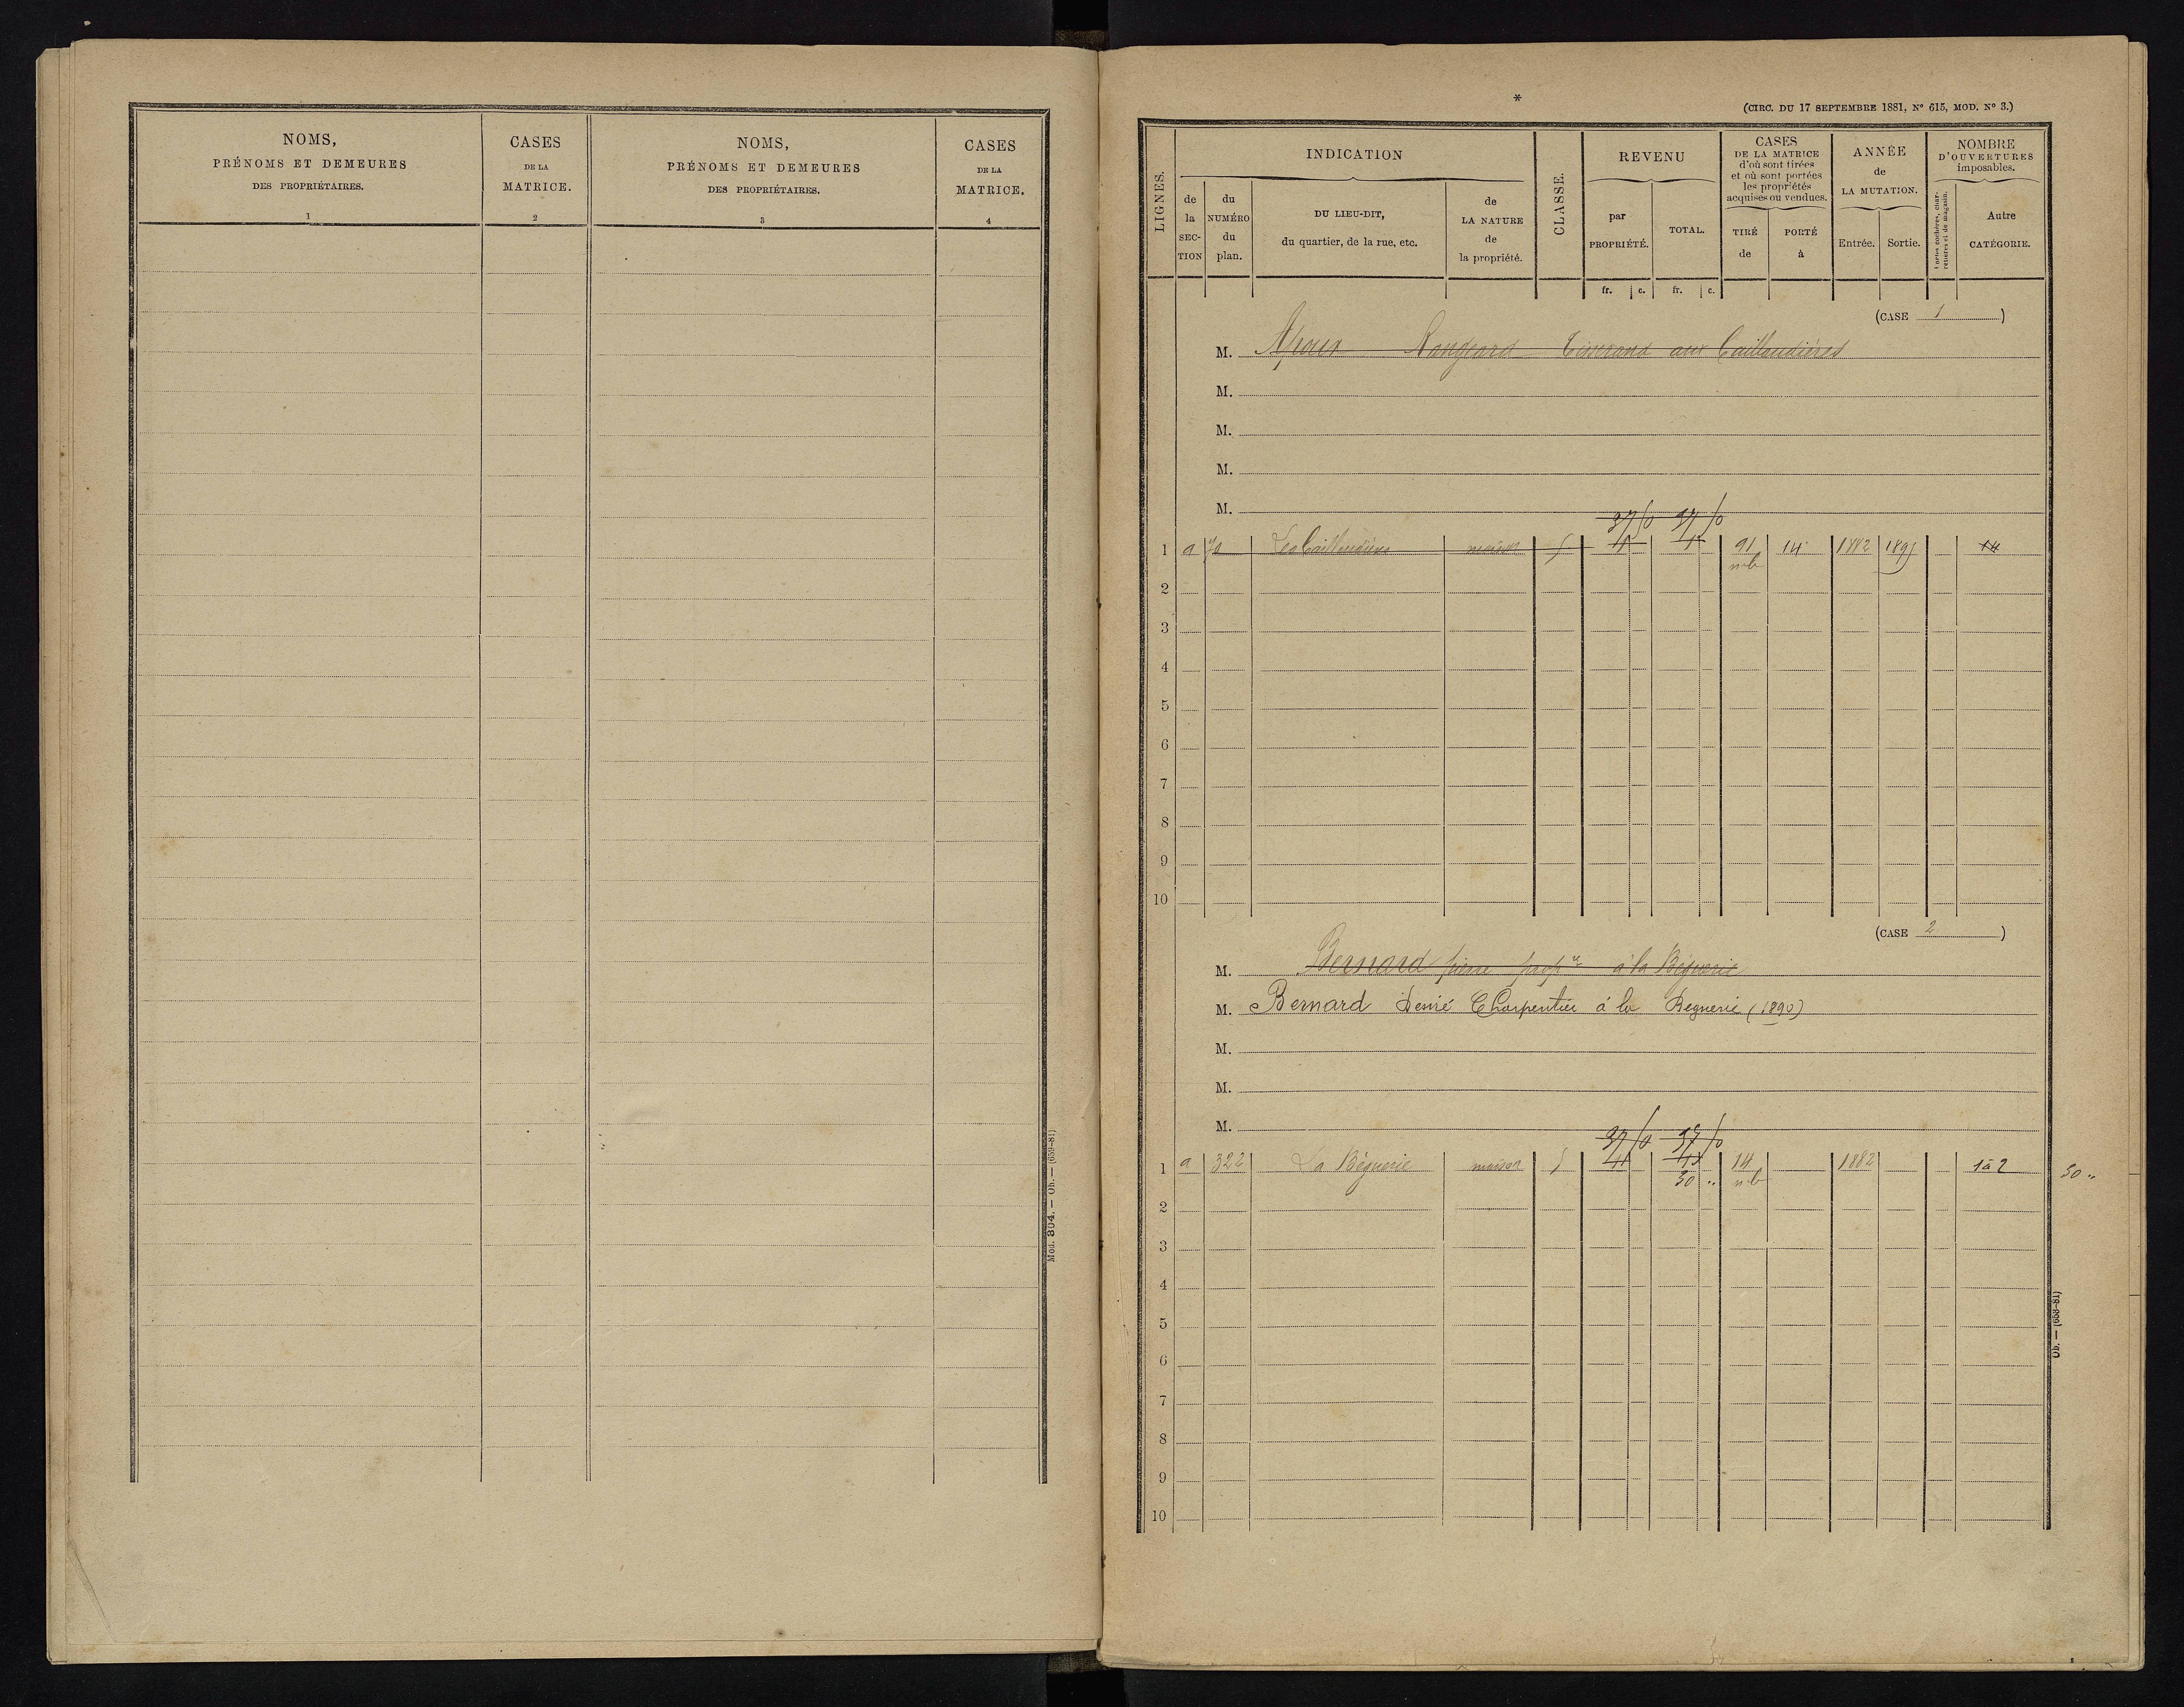 NOMS,
PRÉNOMS ET DEMEURES
DES PROPRIÉTAIRES.
1
CASES
DE LA
MATRICE.
2
NOMS,
PRÉNOMS ET DEMEURES
DES PROPRIÉTAIRES.
3
CASES
DE LA
MATRICE.
4
Mod. 304. — Ob. — (659-81)
*
(CIRC. DU 17 SEPTEMBRE 1881, Nº 615, MOD. Nº 3.)
LIGNES.
INDICATION
de la SECTION
du NUMÉRO du plan.
DU LIEU-DIT,
du quartier, de la rue, etc.
de LA NATURE de la propriété.
CLASSE.
REVENU
par PROPRIÉTÉ.
TOTAL.
fr. c. fr. c.
CASES
DE LA MATRICE
d'où sont tirées
et où sont portées
les propriétés
acquises ou vendues.
TIRÉ de
PORTÉ à
ANNÉE
de
LA MUTATION.
Entrée. Sortie.
NOMBRE
D'OUVERTURES
imposables.
Portes cochères, charretières et de magasin.
Autre
CATÉGORIE.
(CASE 1)
M. Rangeard Tisserand aux Caillaudières
M.
M.
M.
M.
1 a Les Caillaudières maison 5 91 14 1882 1895 14
2
3
4
5
6
7
8
9
10
(CASE 2)
M. Bernard pierre propre à la Béguerie
M. Bernard Desiré Charpentier à la Beguerie (1890)
M.
M.
M.
37 50 37 50
1 a 322 La Béguerie maison 5 14 1882 1 à 2
30 „ 30 „
2
3
4
5
6
7
8
9
10
Ob. — (658-81)